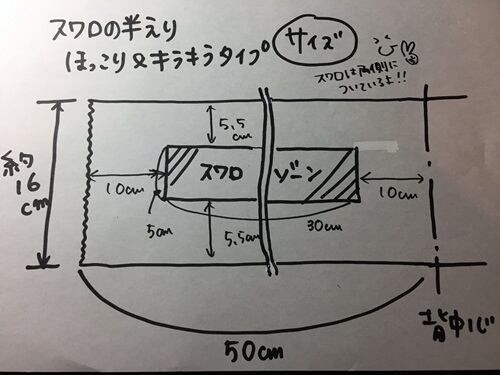 スワロの半えり
ほっこり&キラキラタイプ
サイズ
スワロは両側に
ついているよ!!
5.5cm
約16cm
スワロ ゾーン
10cm
10cm
5cm
5.5cm
30cm
背中心
50cm